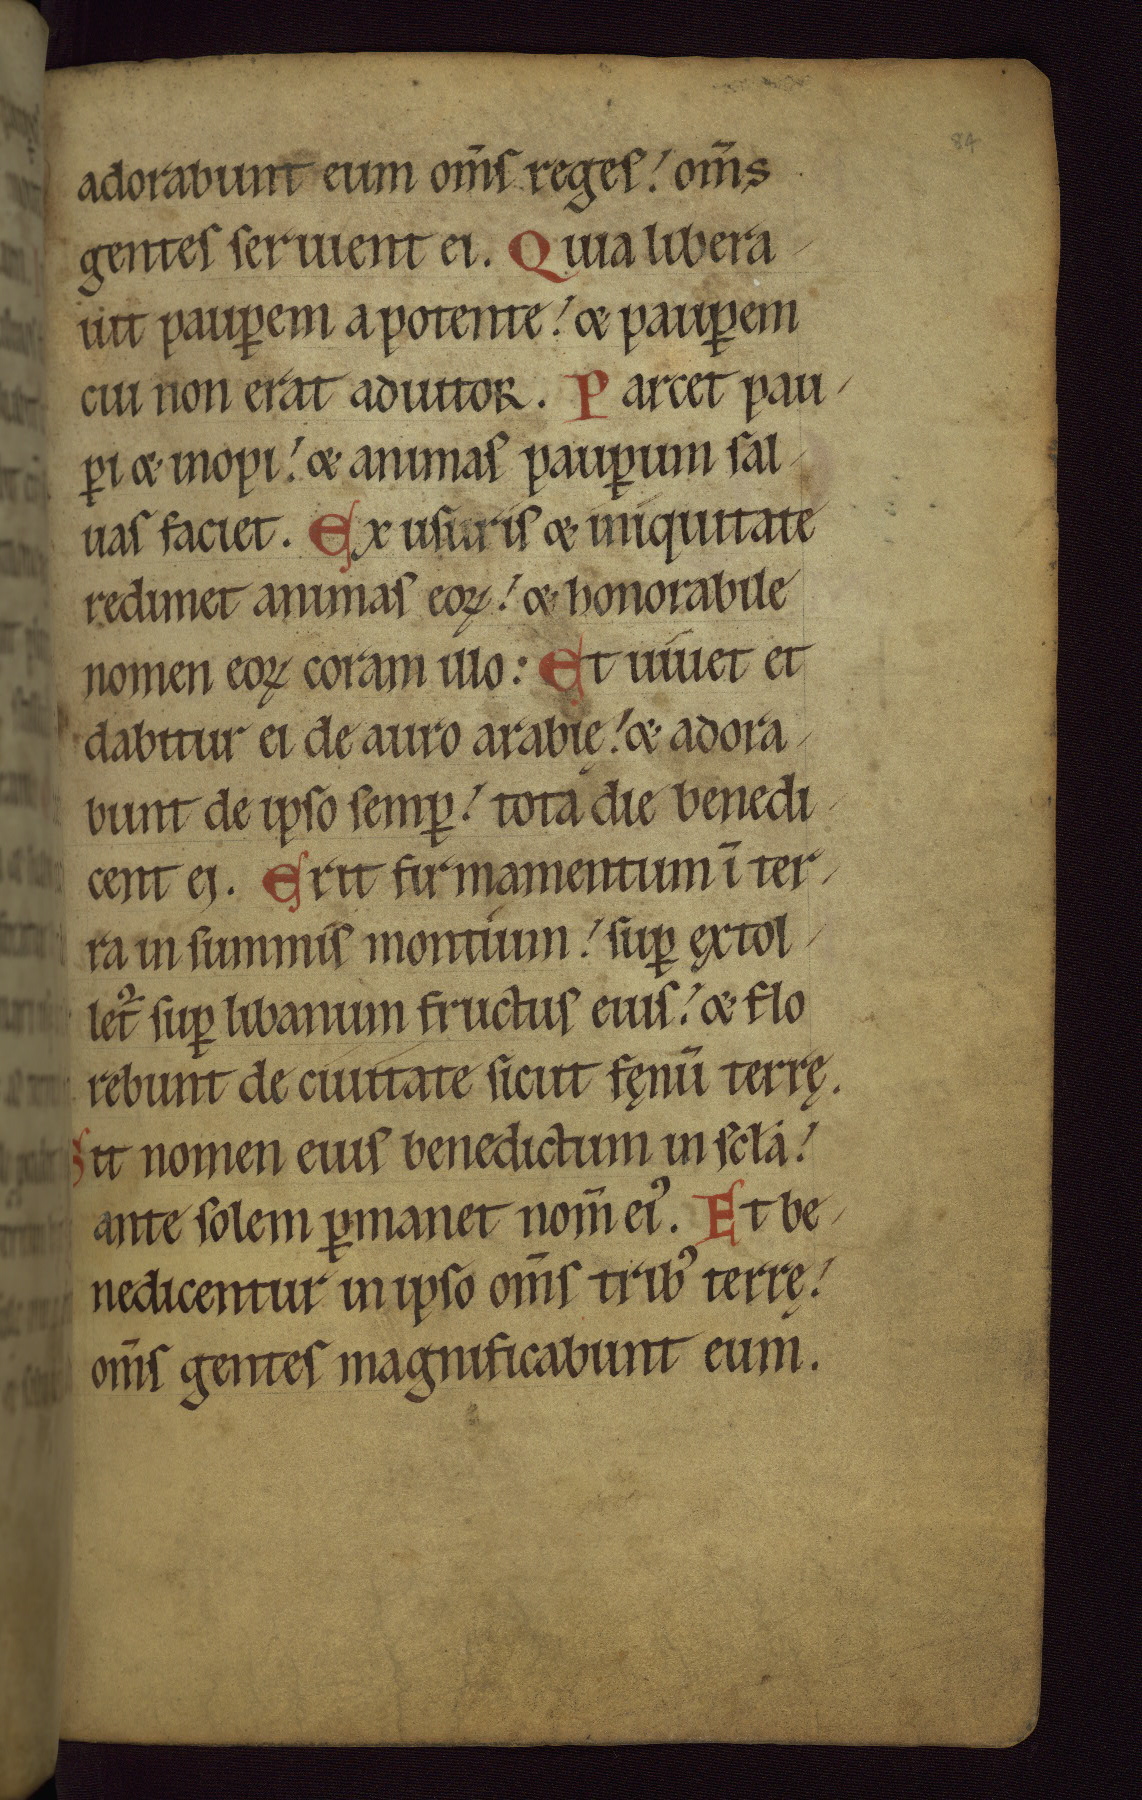 84
adorabunt eum om̄s reges! om̄s
gentes seruient ei. Quia libera
uit paup̲em a potente! & paup̲em
cui non erat adiutor. Parcet pau
p̲i & inopi! & animas paup̲um sal
uas faciet. Ex usuris & iniquitate
redimet animas eoꝝ! & honorabile
nomen eoꝝ coram illo: Et uiuet et
dabitur ei de auro arabię! & adora
bunt de ipso semp̲! tota die benedi
cent ei. Erit firmamentum ī ter
ra in summis montium! sup̲ ęxtol
let᷑ sup̲ libanum fructus eius! & flo
rebunt de ciuitate sicut fęnū terrę.
Sit nomen eius benedictum in scl̄a!
ante solem p̲manet nom̄ eiꝰ. Et be
nedicentur in ipso om̄s tribꝰ terrę!
om̄s gentes magnificabunt eum.